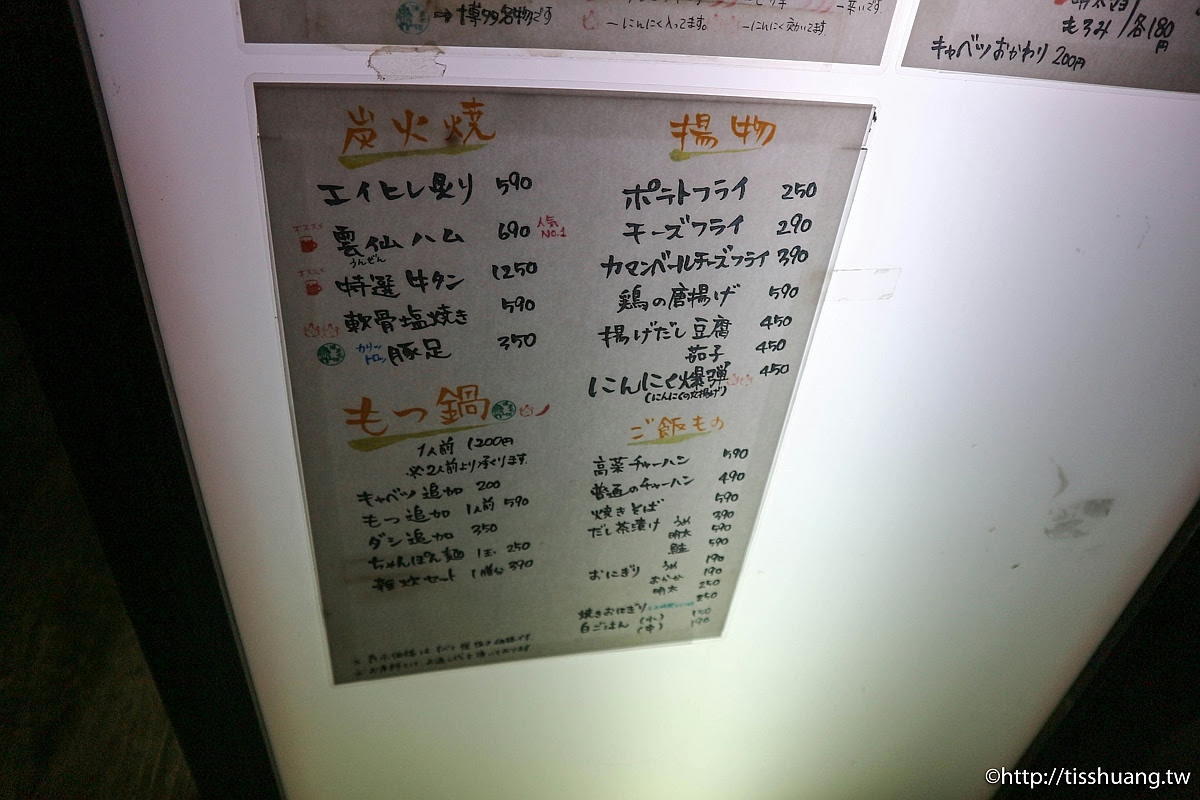 ⇒博多名物です
―にんにく入ってます。
―にんにく効いてます。
―辛いです
もろみ / 各180円
キャベツおかわり 200円
炭火焼
エイヒレ炙り 590
オススメ 雲仙ハム 690 人気No.1
うんぜん
オススメ 特選 牛タン 1250
軟骨塩焼き 590
カリッ トロッ 豚足 350
もつ鍋
1人前 1200円
※2人前より承ります。
キャベツ追加 200
もつ追加 1人前 590
ダシ追加 350
ちゃんぽん麺 1玉 250
雑炊セット 390
揚物
ポテトフライ 250
チーズフライ 290
カマンベールチーズフライ 390
鶏の唐揚げ 590
揚げだし豆腐 450
茄子 450
にんにく爆弾 450
(にんにくの丸揚げ)
ご飯もの
高菜チャーハン 590
普通のチャーハン 490
焼きそば 590
だし茶漬け うめ 390
明太 590
鮭 590
おにぎり うめ 190
おかか 190
明太 250
焼きおにぎり 250
白ごはん (小) 150
(中) 190
©http://tisshuang.tw